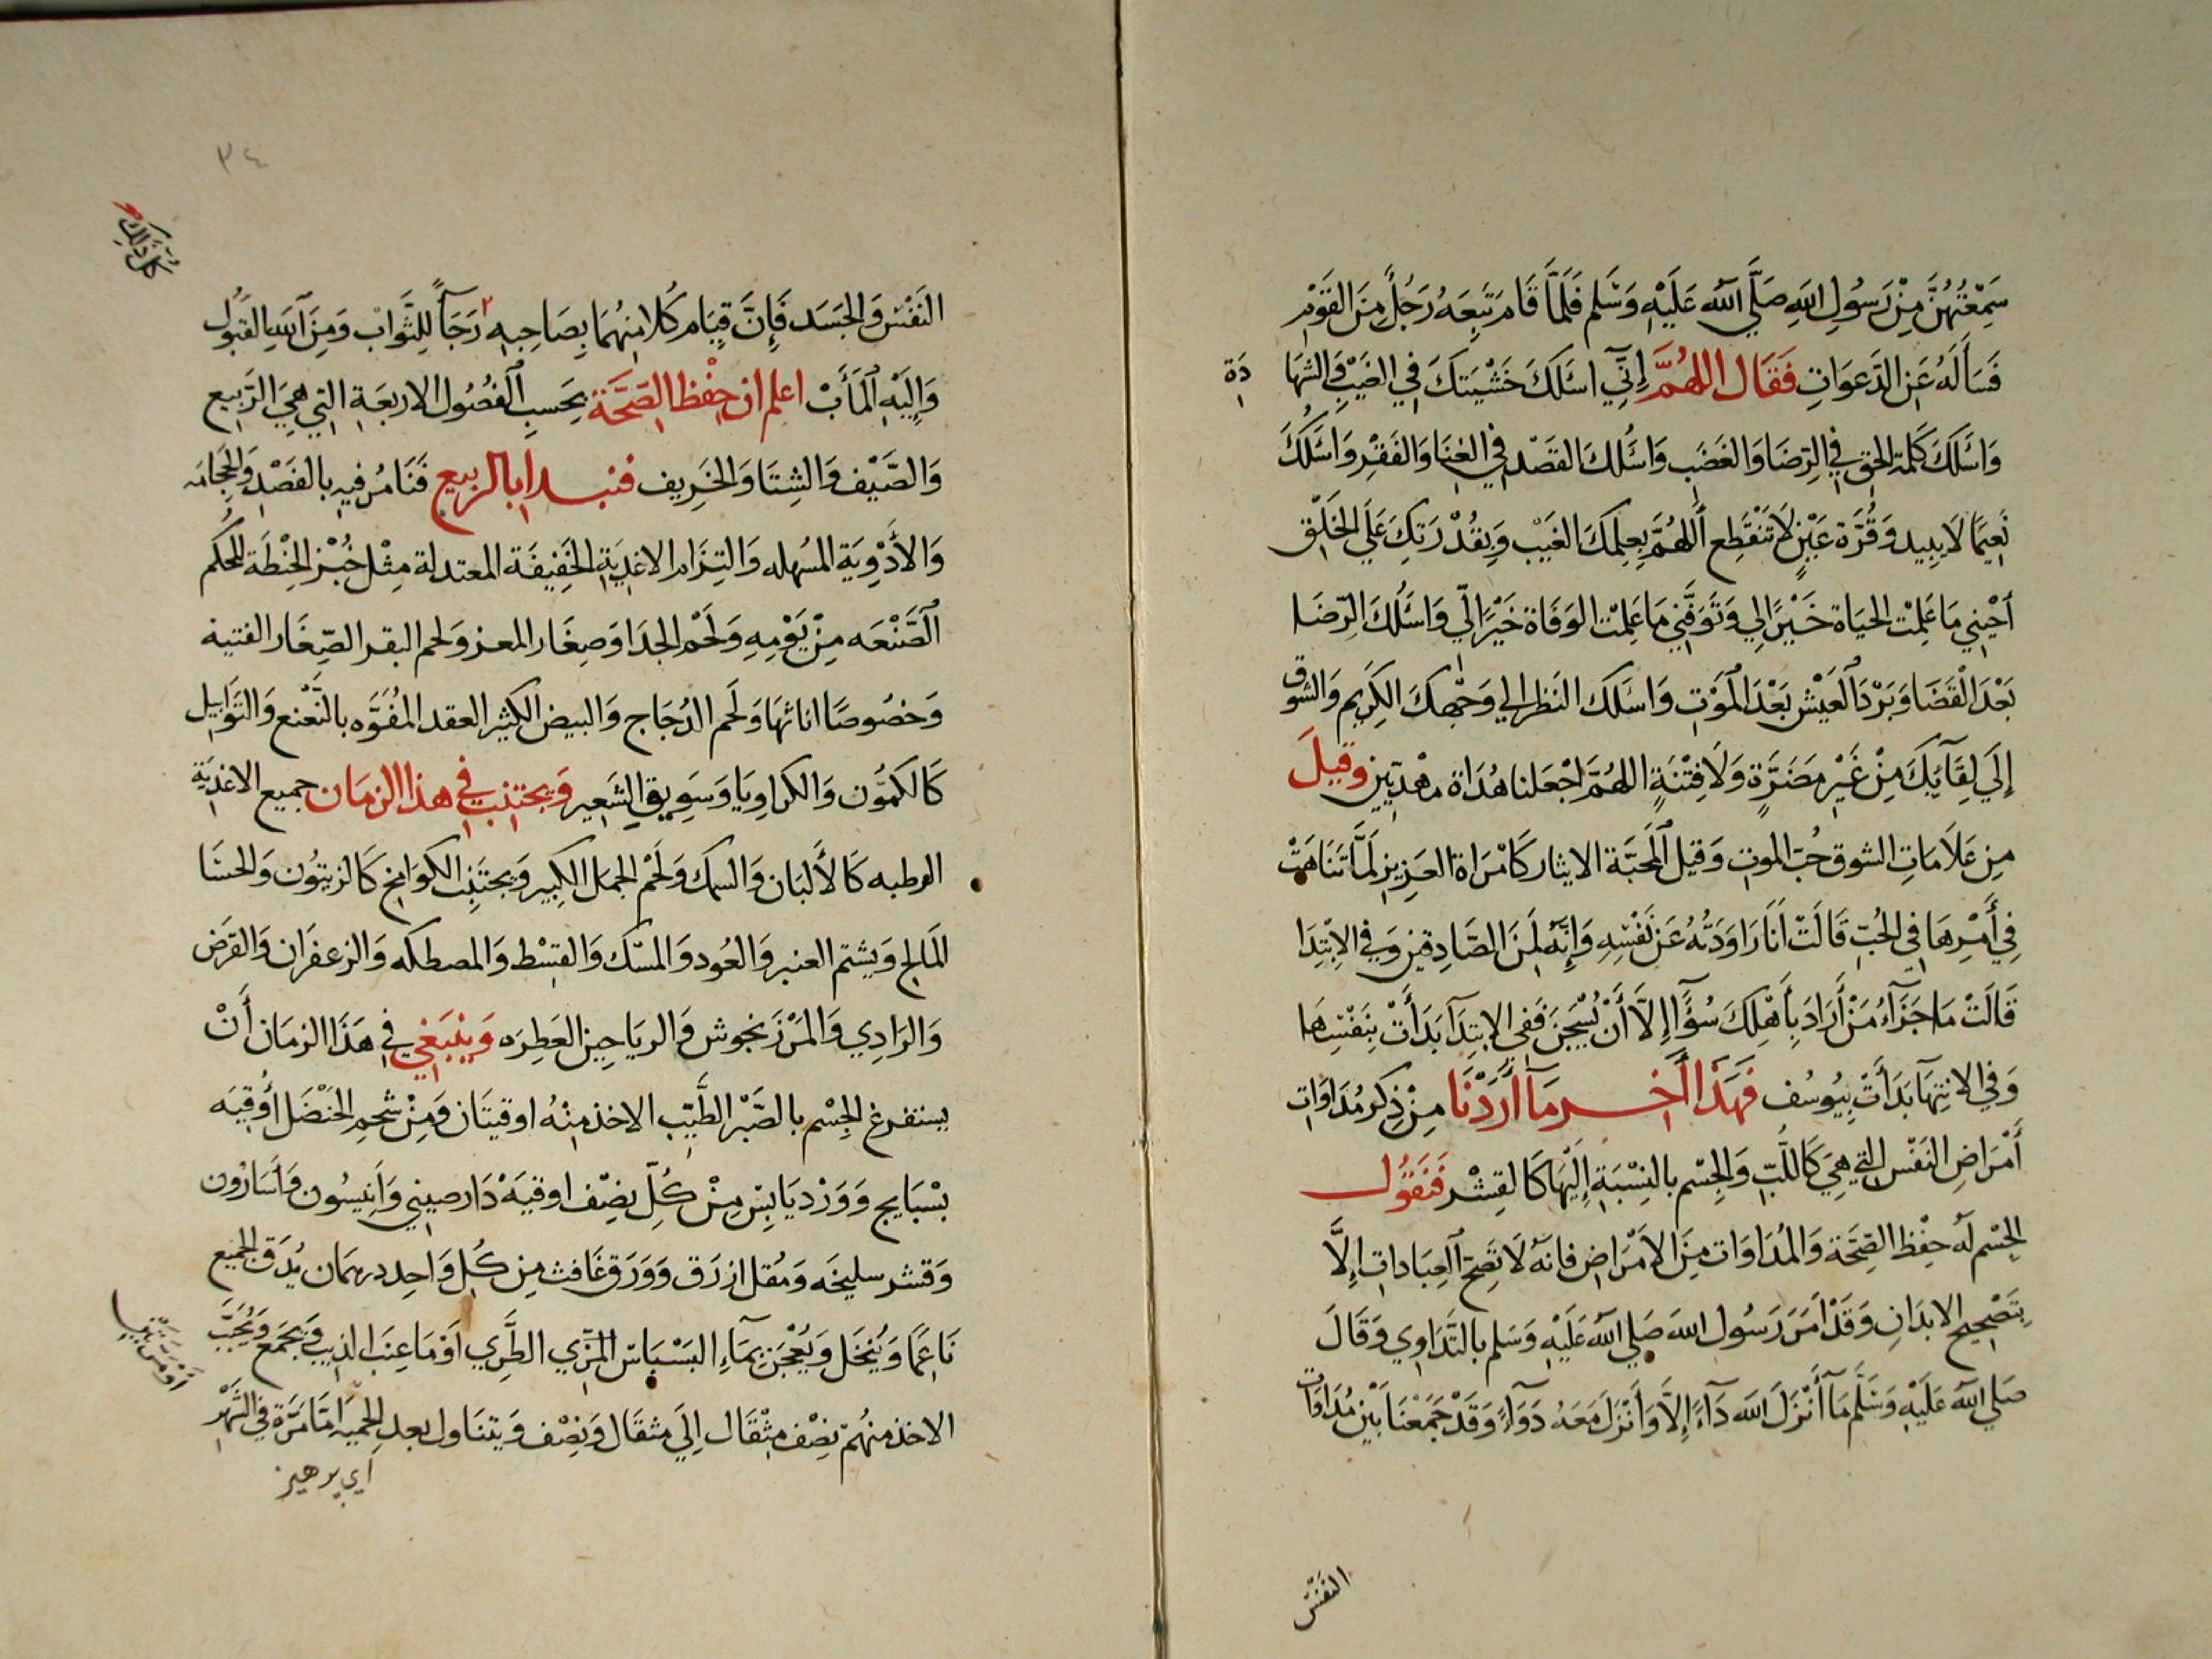 سَمِعْتُهُنَّ مِنْ رَسُولِ اللهِ صَلَّي اللّه عَلَيْهِ وَسَلم فَلَمَّا قَامَ تَبِعَهُ رَجُلٌ مِنَ القَوْمِ
فَسَألَهُ عَنِ الدَّعَوَاتِ فَقَال اللهُمَّ إِنِّي اسْئَلكَ خَشْيَتكَ فِي الغَيْبِ وَالشهَا دَةِ
وَاسْئَلكَ كَلِمَة الحق فِي الرِّضَا وَالغَضَب وَاسْئَلكَ القَصْد فِي الغِنَا وَالفَقْرِ وَاسْئَلكَ
نَعِيمًا لَا يَبِيد وَقُرَّة عَيْنٍ لَا تَنْقَطِع اللَّهُمَّ بِعِلمِكَ الغَيْب وَبِقُدْرَتِكَ عَلَي الخَلْق
أَحْيِني مَا عَلِمْت الحَيَاة خَيْرًا لِي وَتَوَفَّنِي مَا عَلِمْت الوَفَاة خَيْرًا لِّي وَاسْئَلكَ الرِّضَا
بَعْدَ القَضَا وَبَرْدَ العَيْش بَعْدَ المَوْتِ وَاسْئَلكَ النَظر الي وَجْهكَ الكَرِيم وَالشوق
إِلَي لِقَآئِكَ مِنْ غَيْرِ مَضَرَّة وَلَا فِتْنَةٍ اللهُمَّ اجْعَلنا هُدَاة مهْدِيّين وقيلَ
مِن عَلَامَاتِ الشوق حُبّ الموت وَقيل المحَبَّة الايثار كَامْرَاة العَزِيزِ لَمَّا تَنَاهَتْ
فِي أَمْرِهَا فِي الحُبّ قَالَتْ أَنَا رَاوَدَتُهُ عَن نَفْسِهِ وَإِنَّهُ لَمِنَ الصَّادِقين وَفي الابْتِدَا
قَالَتْ مَا جَزَآءُ مَنْ أَرَادَ بِأَهْلِكَ سُوْٓأ إِلَّا أَنْ يُسْجَنَ فَفِي الابتِدَآ بَدَأَتْ بِنَفْسِهَا
وَفي الانتِهَا بَدَأَتْ بِيُوسُف فَهَذَا أَخِر مَآ أَرَدْنَا مِنْ ذِكر مُدَاوَات
أَمْرَاضِ النَفْس التي هِيَ كَاللّبّ وَالجِسْم بالنِسْبَةِ إِلَيْهَا كَالقِشْر فَنَقوُل
الجِسْم لَهُ حِفْظ الصِّحَة وَالمُدَاوَات مِنَ الأَمْرَاضِ فانهُ لَا تَصِحّ العِبَادات إِلَّا
بِتَصْحِيحِ الابدَانِ وَقَدْ أَمَرَ رَسُول الله صَلي اللّه عَلَيْهِ وَسَلم بالتَّدَاوِي وَقَالَ
صَلي اللّه عَلَيْهِ وَسَلَّم مَآ أَنْزَلَ اللّه دَآءً إِلَّا وَأَنْزَلَ مَعَهُ دَوَآءً وَقَدْ جَمَعْنَا بَيْن مُدَاوَات
النَفْس
٣٤
كل ذَالِكَ
النَفْس وَالجَسَد فَإِنَّ قِيَام كُلا مِنهُمَا بِصَاحِبِهِ رَجَآً للِثَّوَاب وَمِنَ اللهِ القَبُول
وَإِلَيْهِ المَأَبْ اعلم ان حِفْظ الصِّحَّة بِحَسبِ الفُصُول الاربَعَةِ التي هِيَ الرَّبِيع
وَالصَّيْف وَالشِتَا وَالخَرِيف فنبدا بالربيع فَنَامُر فِيهِ بالفَصْدِ وَالحِجَامَه
وَالأَدْوِيَة المسهله وَالتِزَام الاغذِيَةِ الخَفِيفَة المعتدلة مِثْل خُبْز الحِنْطَة المحكم
الصَّنْعَه مِنْ يَوْمِهِ وَلَحْم الجِدَا وَصِغَار المعز وَلحم البقر الصِّغَار الفتيه
وَخصُوصًا اناثهَا وَلَحم الدُجَاج وَالبيض الكثير العقد المُفَوَّه بالنَّعْنع وَالتَوَابِل
كَالكَمُّون وَالكرَاوِيَا وَسَوِيقِ الشَعِير وَيجتنب في هذا الزمَان جميع الاغذيَةِ
الرطبه كَالأَلبَان وَالسمك وَلَحْم الجمَل الكَبِير وَيجتَنِب الكوَامِخ كَالزيتُون وَالحسَا
المَالح وَيشتم العنبر وَالعُود وَالمسْك وَالقسْط وَالمصطكه وَالزعفرَان وَالقرَض
وَالرَادِي وَالمَرْزَنجوش وَالريَاحِين العَطِرَه وَيَنْبَغي في هَذَا الزمَان أَنْ
يستفرغ الجِسْم بالصَّبْر الطَّيِّب الاخذ مِنْهُ اوقيتَان وَمِنْ شحمِ الحَنْضَل أُوقِيَه
بسْبَايج وَوَرْد يَابِس مِنْ كُلّ نصْف اوقيَهْ دَارصِيني وَأَنِيسُون وَأسَارُون
وَقشر سليخَه وَمُقل ازرَق وَوَرَق غَافث مِن كُل وَاحِد درهَمَان يُدَق الجَمِيع
نَاعِمًا وَيُنْخَل وَيُعْجَن بِمَآءِ البَسْبَاس البَّري الطَّرِي أَوْ مَا عِنَب الذيب وَيجمَع وَيُحَبَّب
الاخذ منهُم نِصْف مِثْقَال إِلَي مثقَال وَنِصْف وَيتنَاول بعد الحِميَه امَّا مَرَّة في الشَهْر
اَي پرهيز